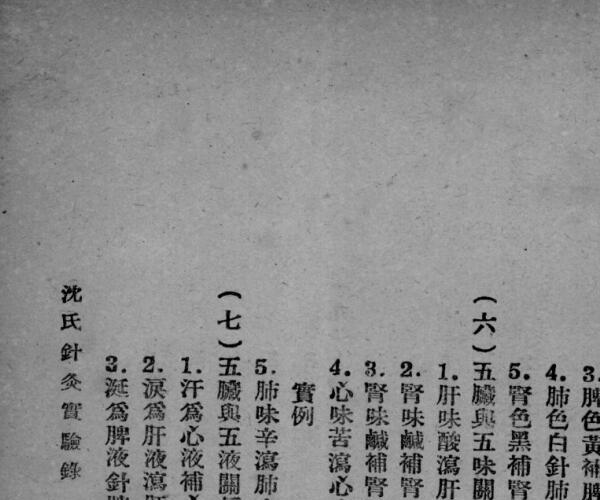 3.脾色黃補脾
4.肺色白針肺
5.腎色黑補腎
(六)五臟與五味關
1.肝味酸瀉肝
2.腎味鹹補腎
3.腎味鹹補腎
4.心味苦瀉心
實例
5.肺味辛瀉肺
(七)五臟與五液關
1.汗爲心液補心
2.淚爲肝液瀉肝
3.涎爲脾液針脾
沈氏針灸實驗錄